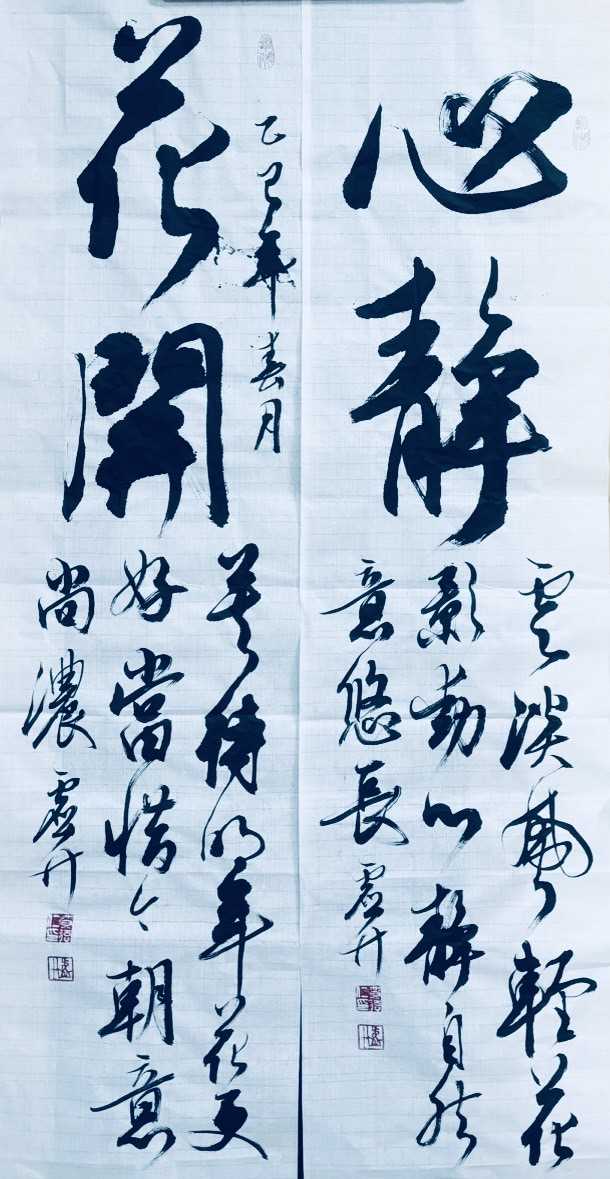 心靜
雲淡風輕花
影動心靜自然
意悠長 虛升
乙巳年春月
花開
莫待明年花更
好當惜今朝意
尚濃 虛升